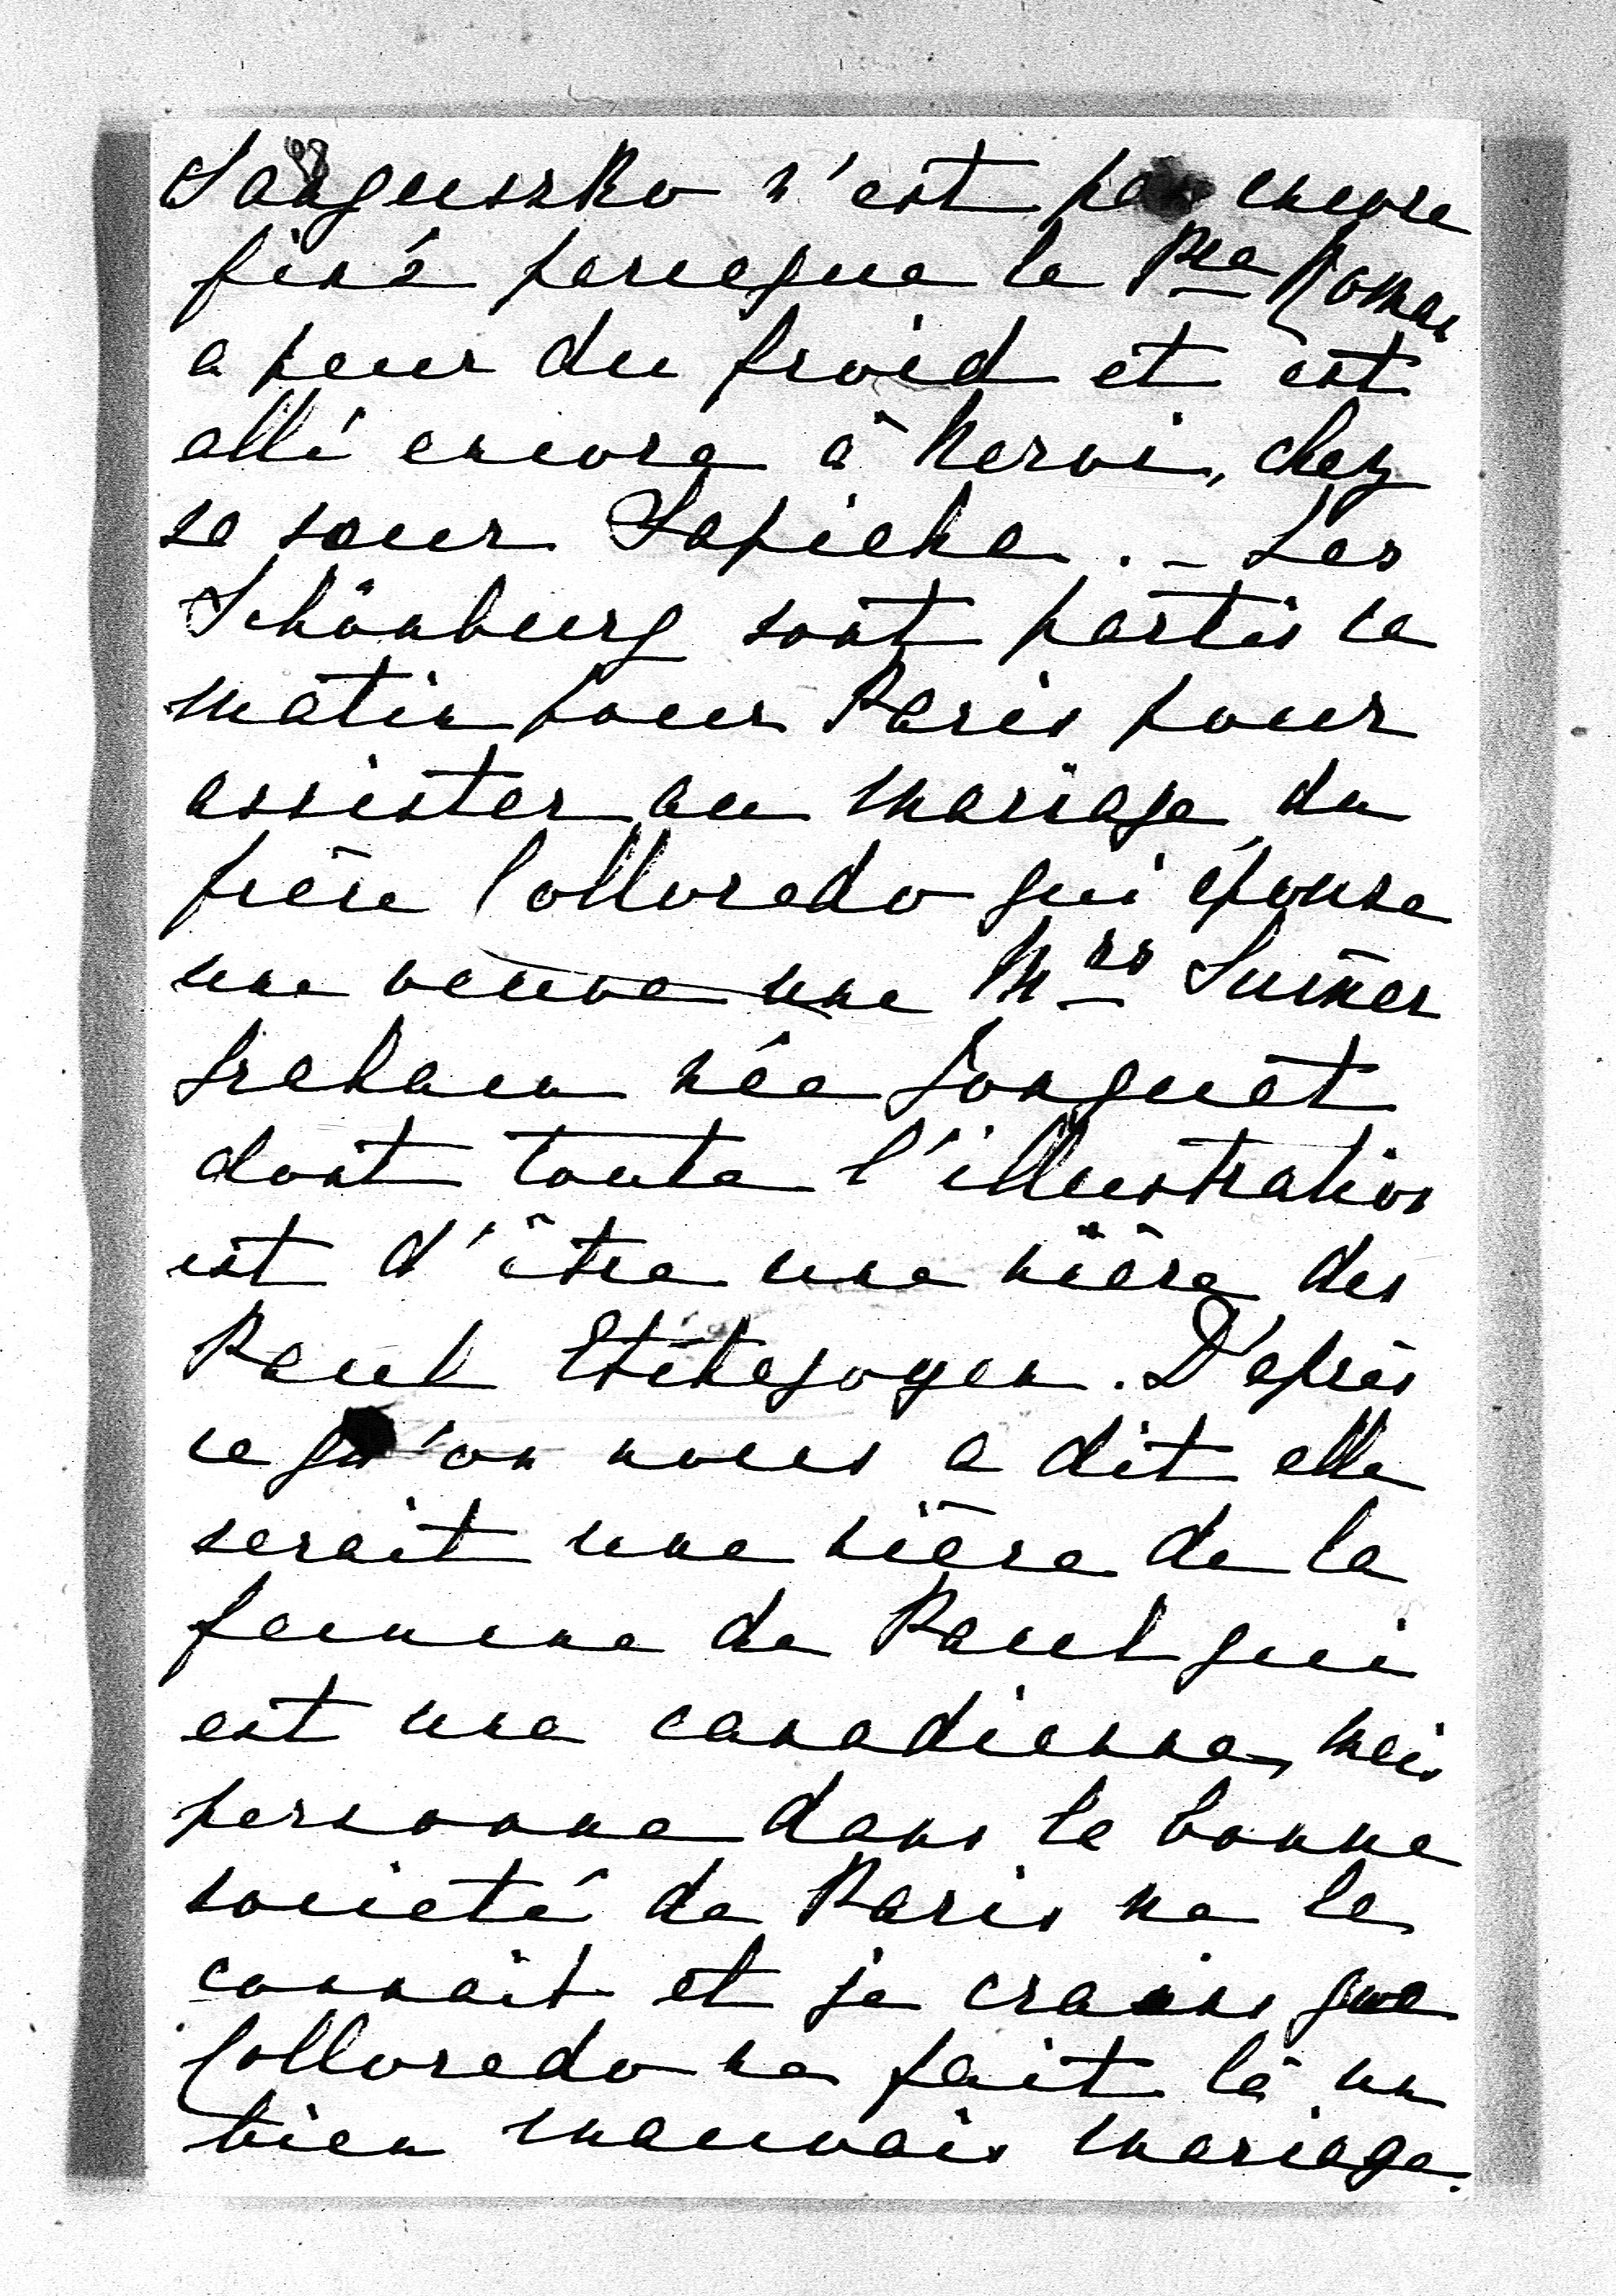 Sanguszko n'est pas encore
fixé parceque le Pce Roman
a peur du froid et est
allé encore à Nervi, chez
sa sœur Sapieha. - Les
Schönburg sont partis ce
matin pour Paris pour
assister au mariage du
frère Colloredo qui épouse
une veuve une Mrs Sumer
Graham née Gonguet
dont toute l'illustration
est d'être une nièce des
Paul Etéhegoyen. D'après
ce qu'on nous a dit elle
serait une nièce de la
femme de Paul qui
est une canadienne, mais
personne dans la bonne
societé de Paris ne la
connait et je crains que
Colloredo ne fait là un
bien mauvais mariage.